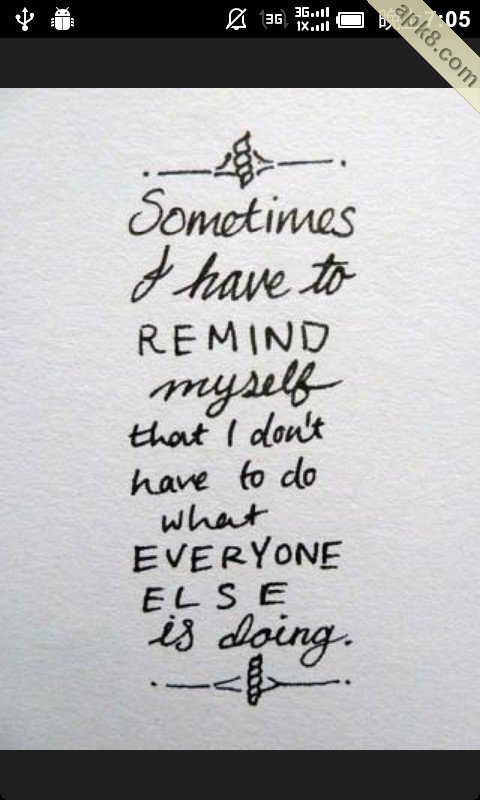 3G
3G
1X
晚 7:05
apk8.com
Sometimes
I have to
REMIND
myself
that I don't
have to do
what
EVERYONE
ELSE
is doing.